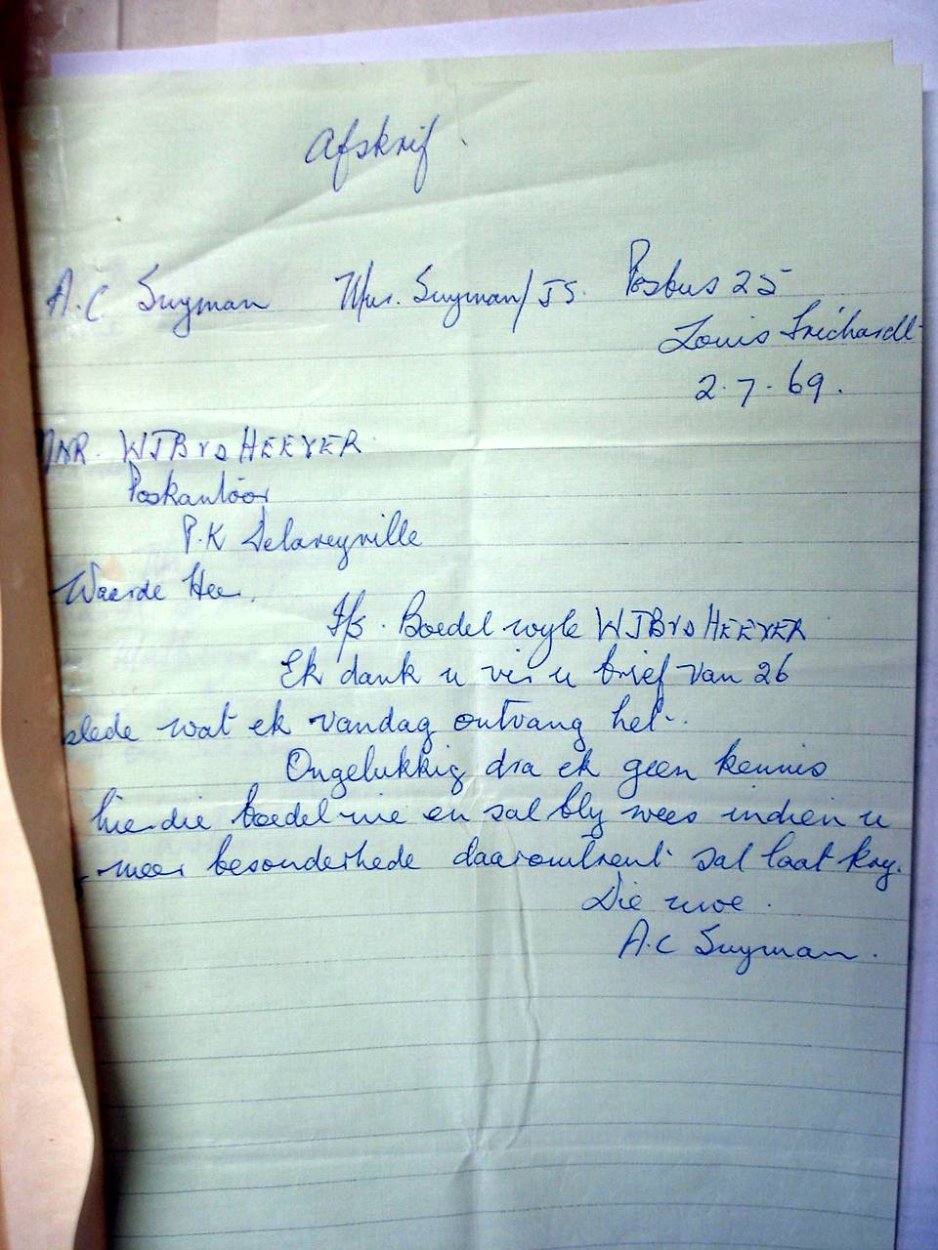 Afskrif.
A.C Snyman Mnr. Snyman/JS. Posbus 25
Louis Trichardt
2.7.69.
MNR. WJB VD HEEVER
Poskantoor
P.K Delareyville
Waarde Heer.
I/S. Boedel wyle WJB VD HEEVER
Ek dank u vir u brief van 26
slede wat ek vandag ontvang het.
Ongelukkig dra ek geen kennis
hierdie boedel nie en sal bly wees indien u
meer besonderhede daaromtrent sal laat kry.
Die uwe.
A.C Snyman.